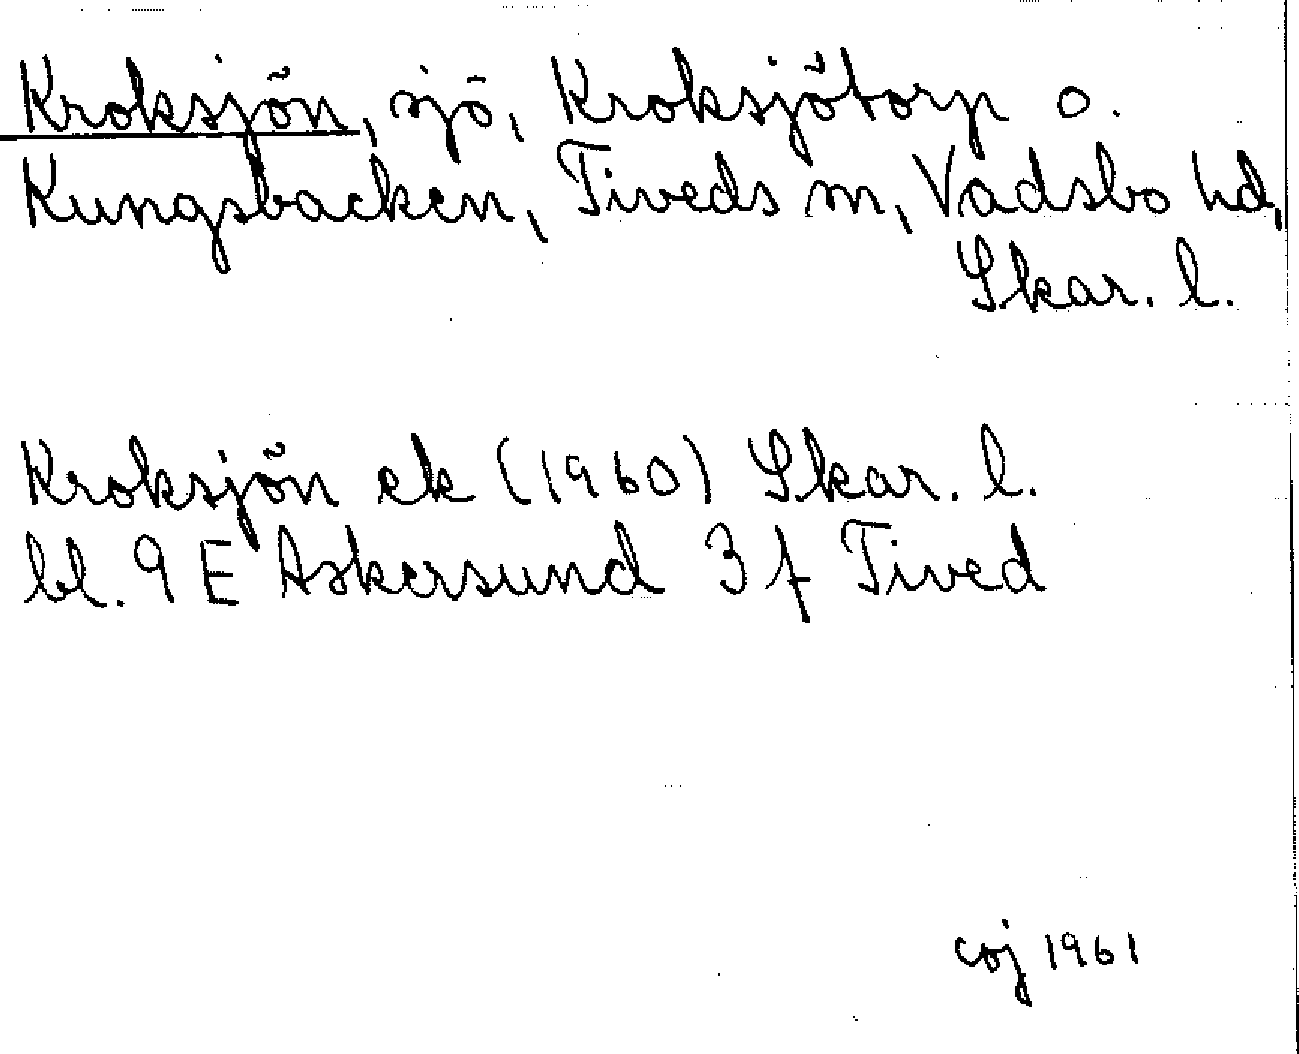 Kroksjön, sjö, Kroksjötorp o.
Kungsbacken, Tiveds sn, Vadsbo hd,
Skar. l.
Kroksjön ek (1960) Skar. l.
bl. 9 E Askersund 3 f Tived
coj 1961